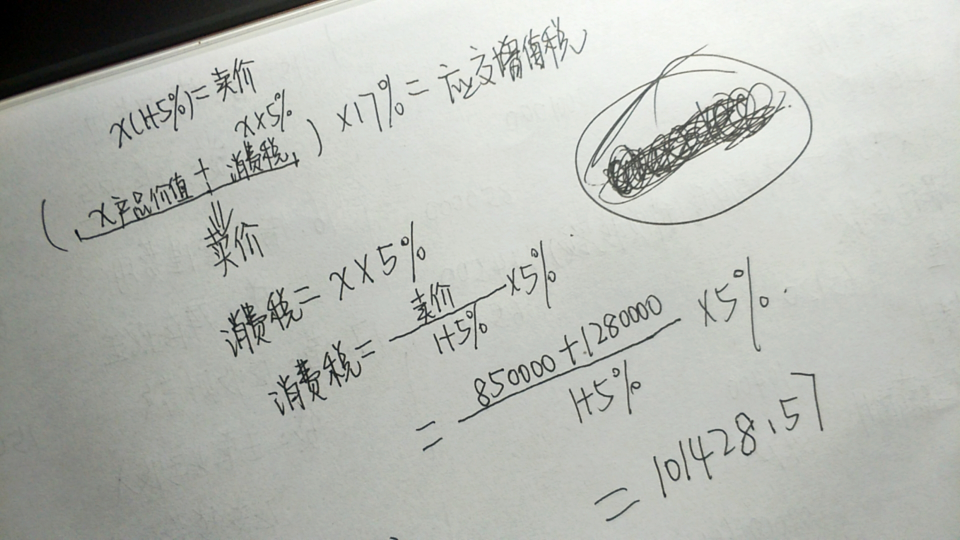 x(1+5%)=卖价
x×5%
(x产品价值+消费税)×17%=应交增值税
卖价
消费税=x×5%
消费税=卖价/1+5%×5%
=850000+1280000/1+5%×5%.
=101428.57